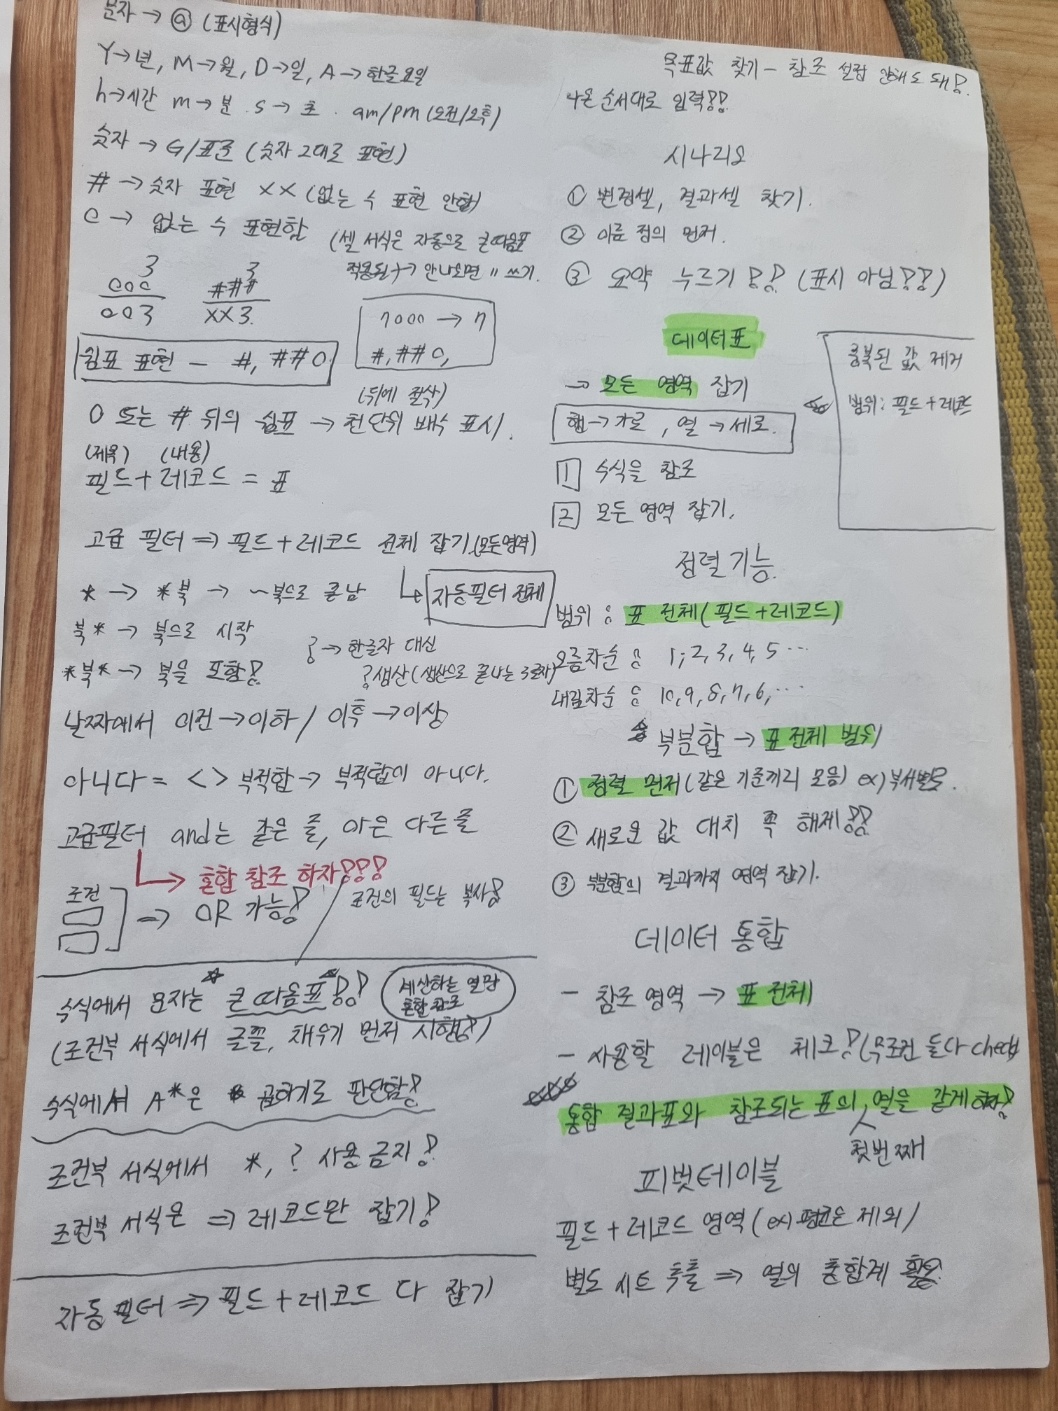 문자 → @ (표시형식)
Y→년, M→월, D→일, A→한글요일
h→시간 m→분 . s→초 . am/pm (오전/오후)
숫자 → G/표준 (숫자 그대로 표현)
# → 숫자 표현 XX (없는 수 표현 안함)
0 → 없는 수 표현함
(셀 서식은 자동으로 큰따옴표
적용됨 → 안나오면 " 쓰기.
3
000
003
3
###
XX3.
7000 → 7
#,##0,
쉼표 표현 - #,##0
(뒤에 콤마)
0 또는 # 뒤의 쉼표 → 천단위 배수 표시.
(제목) (내용)
필드 + 레코드 = 표
고급 필터 ⇒ 필드+레코드 전체 잡기.(모든영역)
자동필터 전체
* → *북 → ~북으로 끝남
북* → 북으로 시작
*북* → 북을 포함!
? → 한글자 대신
?생산 (생산으로 끝나는 3글자)
날짜에서 이전→이하 / 이후→이상
아니다 = <> 부적합→ 부적합이 아니다.
고급필터 and는 같은 줄, or은 다른줄
혼합 참조 하자!!!
조건
⇒ OR 가능!
조건의 필드는 복사!
수식에서 문자는 큰따옴표!!
계산하는 열만
혼합참조
(조건부 서식에서 글꼴, 채우기 먼저 시행!)
수식에서 A*은 곱하기로 판단함!
조건부 서식에서 *, ? 사용금지!
조건부 서식은 ⇒ 레코드만 잡기!
자동필터 ⇒ 필드+레코드 다 잡기
목표값 찾기 - 참조 설정 안해도 돼!
나온 순서대로 입력!!
시나리오
① 변경셀, 결과셀 찾기.
② 이름 정의 먼저.
③ 요약 누르기!! (표시 아님!!)
데이터표
→ 모든 영역 잡기
행→가로, 열→세로.
1 수식을 참조
2 모든 영역 잡기.
중복된 값 제거
범위: 필드+레코드
정렬 기능.
범위 : 표 전체(필드+레코드)
오름차순 : 1, 2, 3, 4, 5 ...
내림차순 : 10, 9, 8, 7, 6, ...
부분합 → 표 전체 범위
① 정렬 먼저 (같은 기준끼리 모음) ex) 부서별로.
② 새로운 값 대치 쪽 해제!!
③ 부분합의 결과까지 영역 잡기.
데이터 통합
- 참조 영역 → 표 전체
- 사용할 레이블은 체크! (무조건 둘다 check)
통합 결과표와 참조되는 표의 열을 같게 하자!
첫번째
피벗테이블
필드 + 레코드 영역 (ex) 평균은 제외)
별도 시트 추출 ⇒ 열의 총합계